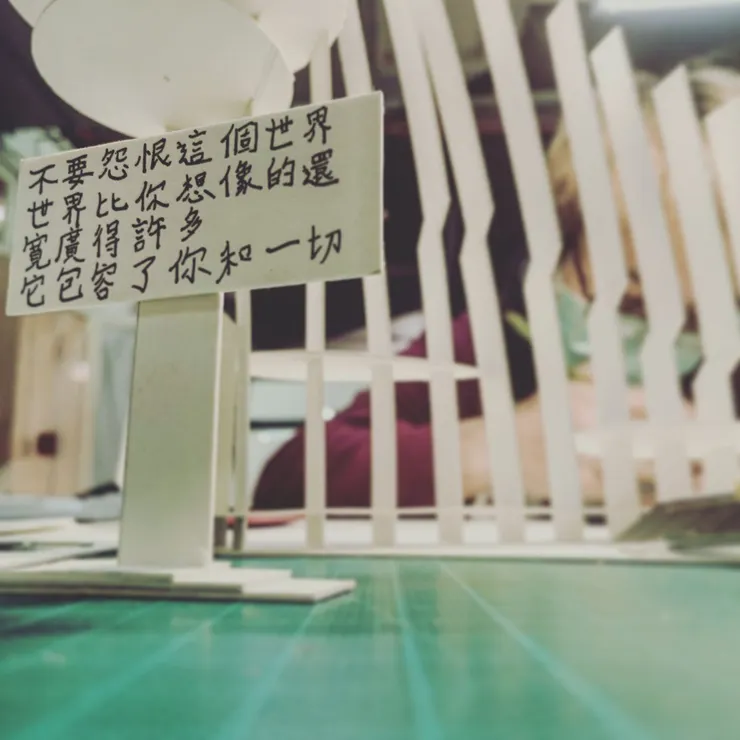 不要怨恨這個世界
世界比你想像的還
寬廣得許多
它包容了你和一切